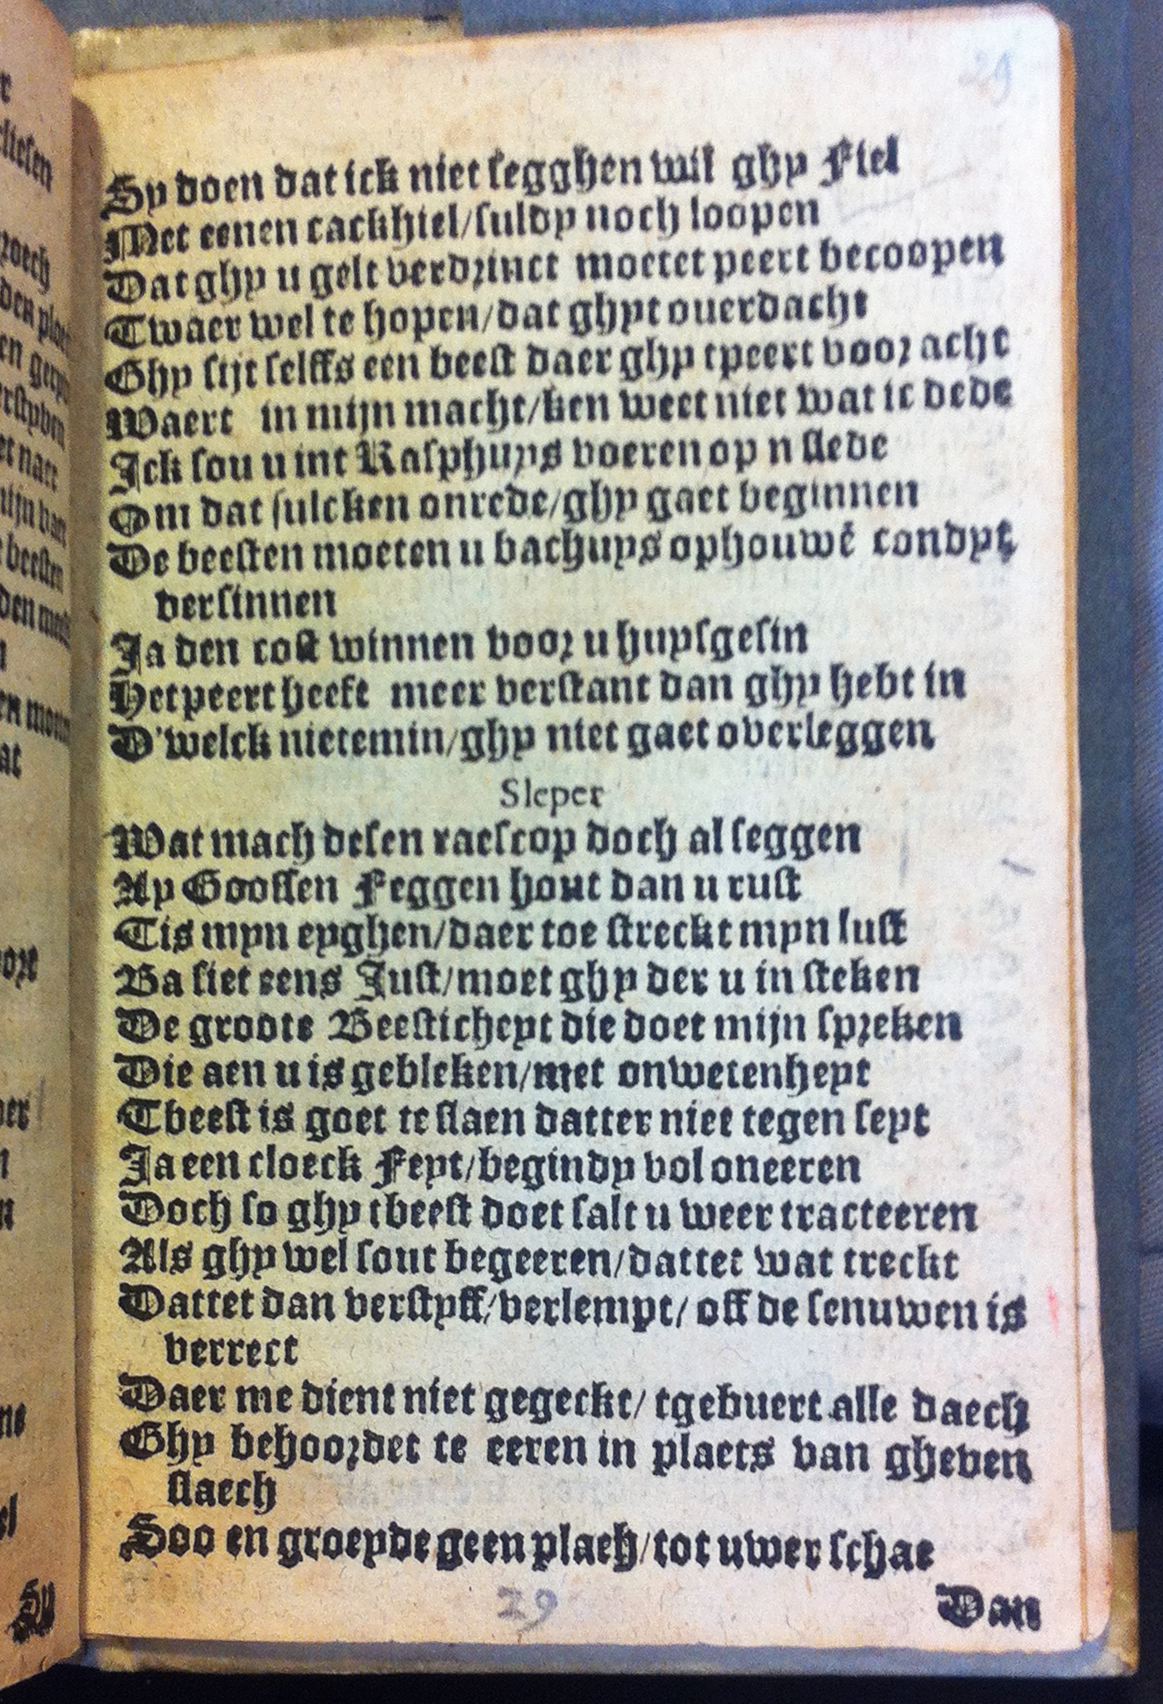 29
Sy doen dat ick niet segghen wil ghy Fiel
Met eenen cackhiel/suldy noch loopen
Dat ghy u gelt verdrinct moetet peert becoopen
Twaer wel te hopen/dat ghyt overdacht
Ghy sijt selffs een beest daer ghy tpeert voor acht
Waert in mijn macht/ken weet niet wat ic dede
Ick sou u int Rasphuys voeren op n slede
Om dat sulcken onrede/ghy gaet beginnen
De beesten moeten u bachuys ophouwē condyt,
versinnen
Ja den cost winnen voor u huysgesin
Het peert heeft meer verstant dan ghy hebt in
D'welck nietemin/ghy niet gaet overleggen
Sleper
Wat mach desen raescop doch al seggen
Ay Goossen Feggen hout dan u rust
Tis myn eyghen/daer toe streckt myn lust
Ba siet eens Just/moet ghy der u in steken
De groote Beesticheyt die doet mijn spreken
Die aen u is gebleken/met onwetenheyt
Tbeest is goet te slaen datter niet tegen seyt
Ja een cloeck Feyt/begindy vol oneeren
Doch so ghy tbeest doet salt u weer tracteeren
Als ghy wel sout begeeren/dattet wat treckt
Dattet dan verstyff/verlempt/ off de senuwen is
verrect
Daer me dient niet gegeckt/ tgebuert alle daech
Ghy behoordet te eeren in plaets van gheven
slaech
Soo en groeyde geen plaeh/tot uwer schae
29
Dan